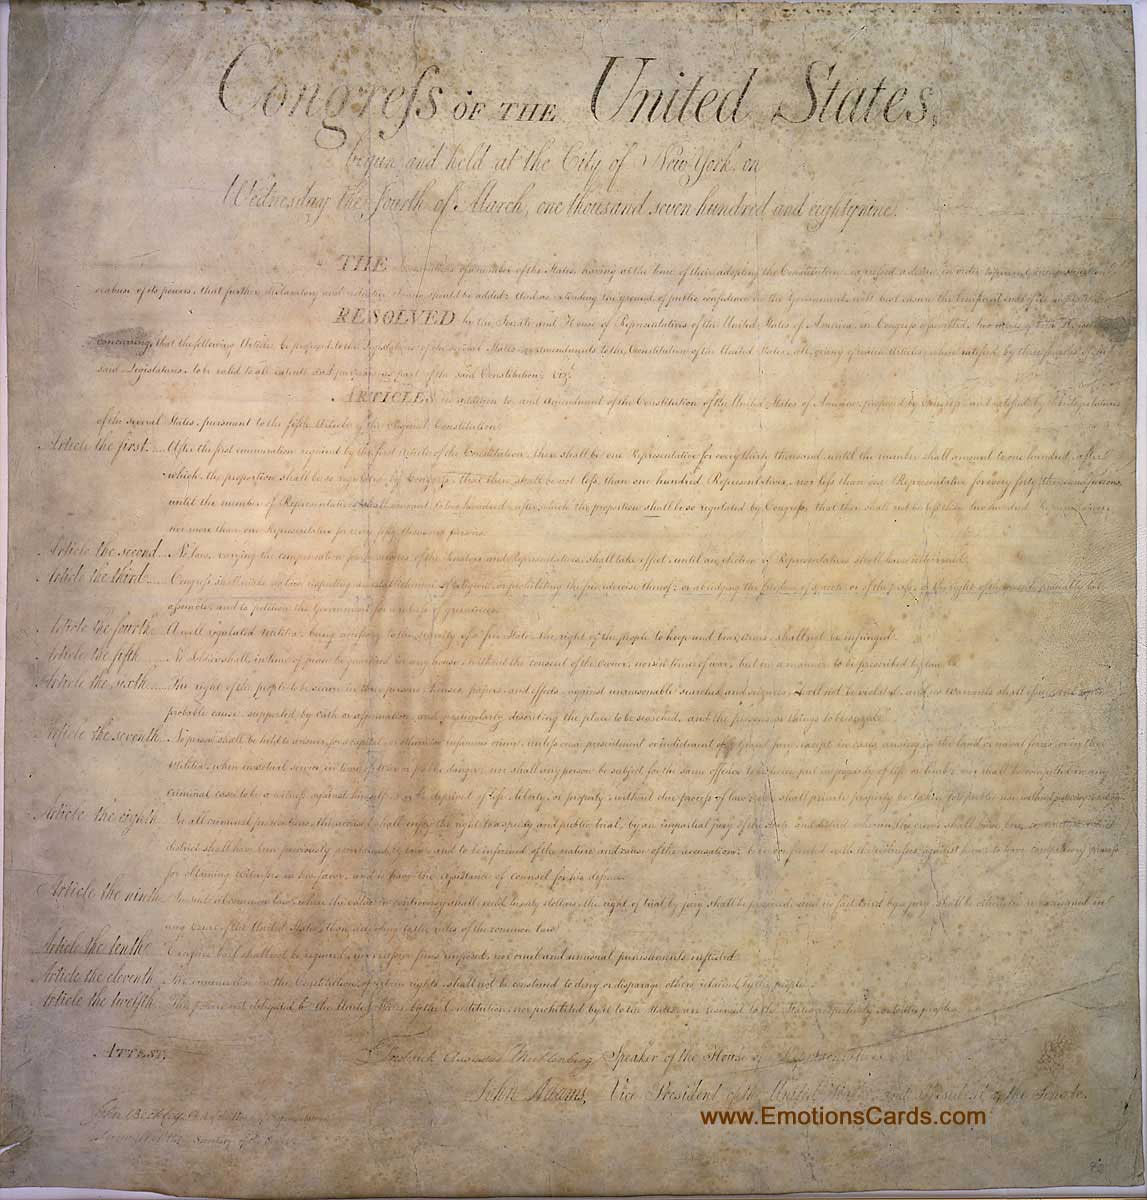 Congress OF THE United States,
begun and held at the City of New York, on
Wednesday the Fourth of March, one thousand seven hundred and eighty nine.
THE Conventions of a number of the States, having at the time of their adopting the Constitution, expressed a desire, in order to prevent misconstruction
or abuse of its powers, that further declaratory and restrictive clauses should be added: And as extending the ground of public confidence in the Government, will best ensure the beneficent ends of its institution
RESOLVED by the Senate and House of Representatives of the United States of America, in Congress assembled, two thirds of both Houses
concurring, that the following Articles be proposed to the Legislatures of the several States, as amendments to the Constitution of the United States, all, or any of which Articles, when ratified by three fourths of the
said Legislatures, to be valid to all intents and purposes, as part of the said Constitution; viz.t
ARTICLES in addition to, and Amendment of the Constitution of the United States of America, proposed by Congress, and ratified by the Legislatures
of the several States, pursuant to the fifth Article of the Original Constitution.
Article the first... After the first enumeration required by the first Article of the Constitution, there shall be one Representative for every thirty thousand, until the number shall amount to one hundred, after
which, the proportion shall be so regulated by Congress, that there shall be not less than one hundred Representatives, nor less than one Representative for every forty thousand persons,
until the number of Representatives shall amount to two hundred, after which, the proportion shall be so regulated by Congress, that there shall not be less than two hundred Representatives,
nor more than one Representative for every fifty thousand persons.
Article the second... No law, varying the compensation for the services of the Senators and Representatives, shall take effect, until an election of Representatives shall have intervened.
Article the third... Congress shall make no law respecting an establishment of religion, or prohibiting the free exercise thereof; or abridging the freedom of speech, or of the press; or the right of the people peaceably to
assemble, and to petition the Government for a redress of grievances.
Article the fourth... A well regulated Militia, being necessary to the security of a free State, the right of the people to keep and bear Arms, shall not be infringed.
Article the fifth... No Soldier shall, in time of peace be quartered in any house, without the consent of the Owner, nor in time of war, but in a manner to be prescribed by law.
Article the sixth... The right of the people to be secure in their persons, houses, papers, and effects, against unreasonable searches and seizures, shall not be violated, and no Warrants shall issue, but upon
probable cause, supported by Oath or affirmation, and particularly describing the place to be searched, and the persons or things to be seized.
Article the seventh... No person shall be held to answer for a capital, or otherwise infamous crime, unless on a presentment or indictment of a Grand Jury, except in cases arising in the land or naval forces, or in the
Militia, when in actual service in time of War or public danger; nor shall any person be subject for the same offence to be twice put in jeopardy of life or limb; nor shall be compelled in any
criminal case to be a witness against himself, nor be deprived of life, liberty, or property, without due process of law; nor shall private property be taken for public use without just compensation.
Article the eighth... In all criminal prosecutions, the accused shall enjoy the right to a speedy and public trial, by an impartial jury of the State and district wherein the crime shall have been committed, which
district shall have been previously ascertained by law, and to be informed of the nature and cause of the accusation; to be confronted with the witnesses against him; to have compulsory process
for obtaining witnesses in his favor, and to have the assistance of counsel for his defence.
Article the ninth... In suits at common law, where the value in controversy shall exceed twenty dollars, the right of trial by jury shall be preserved, and no fact tried by a jury, shall be otherwise re-examined in
any Court of the United States, than according to the rules of the common law.
Article the tenth... Excessive bail shall not be required, nor excessive fines imposed, nor cruel and unusual punishments inflicted.
Article the eleventh... The enumeration in the Constitution, of certain rights, shall not be construed to deny or disparage others retained by the people.
Article the twelfth... The powers not delegated to the United States by the Constitution, nor prohibited by it to the States, are reserved to the States respectively, or to the people.
ATTEST,
Frederick Augustus Muhlenberg, Speaker of the House of Representatives.
John Adams, Vice President of the United States, and President of the Senate.
John Beckley, Clerk of the House of Representatives.
Secretary of the Senate.
www.EmotionsCards.com